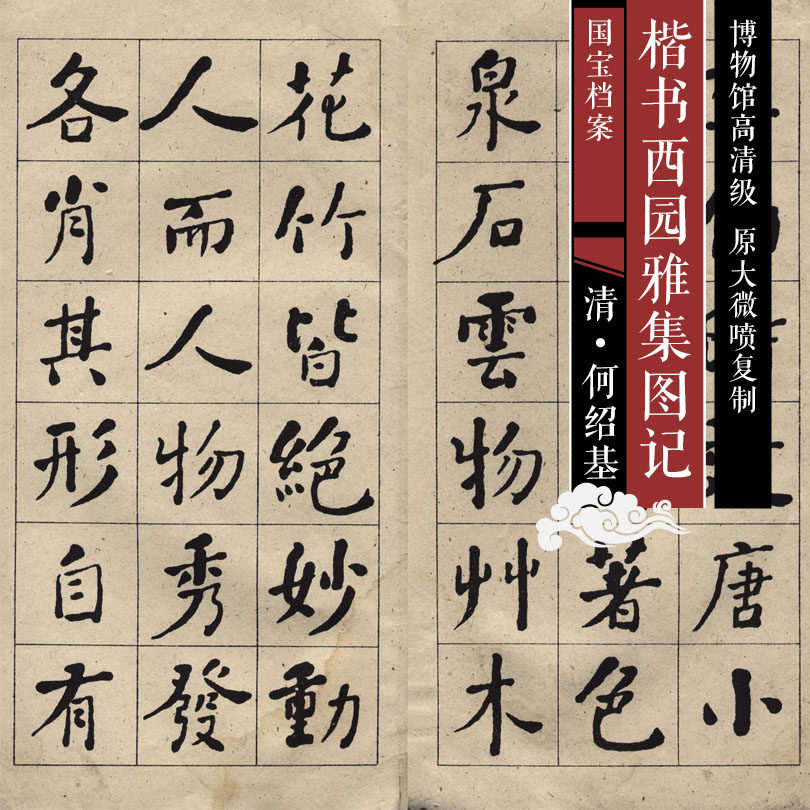 博物馆高清级 原大微喷复制
楷书西园雅集图记
国宝档案
清·何绍基
唐小
著色
泉石雲物艸木
花竹皆絕妙動
人而人物秀發
各肖其形自有